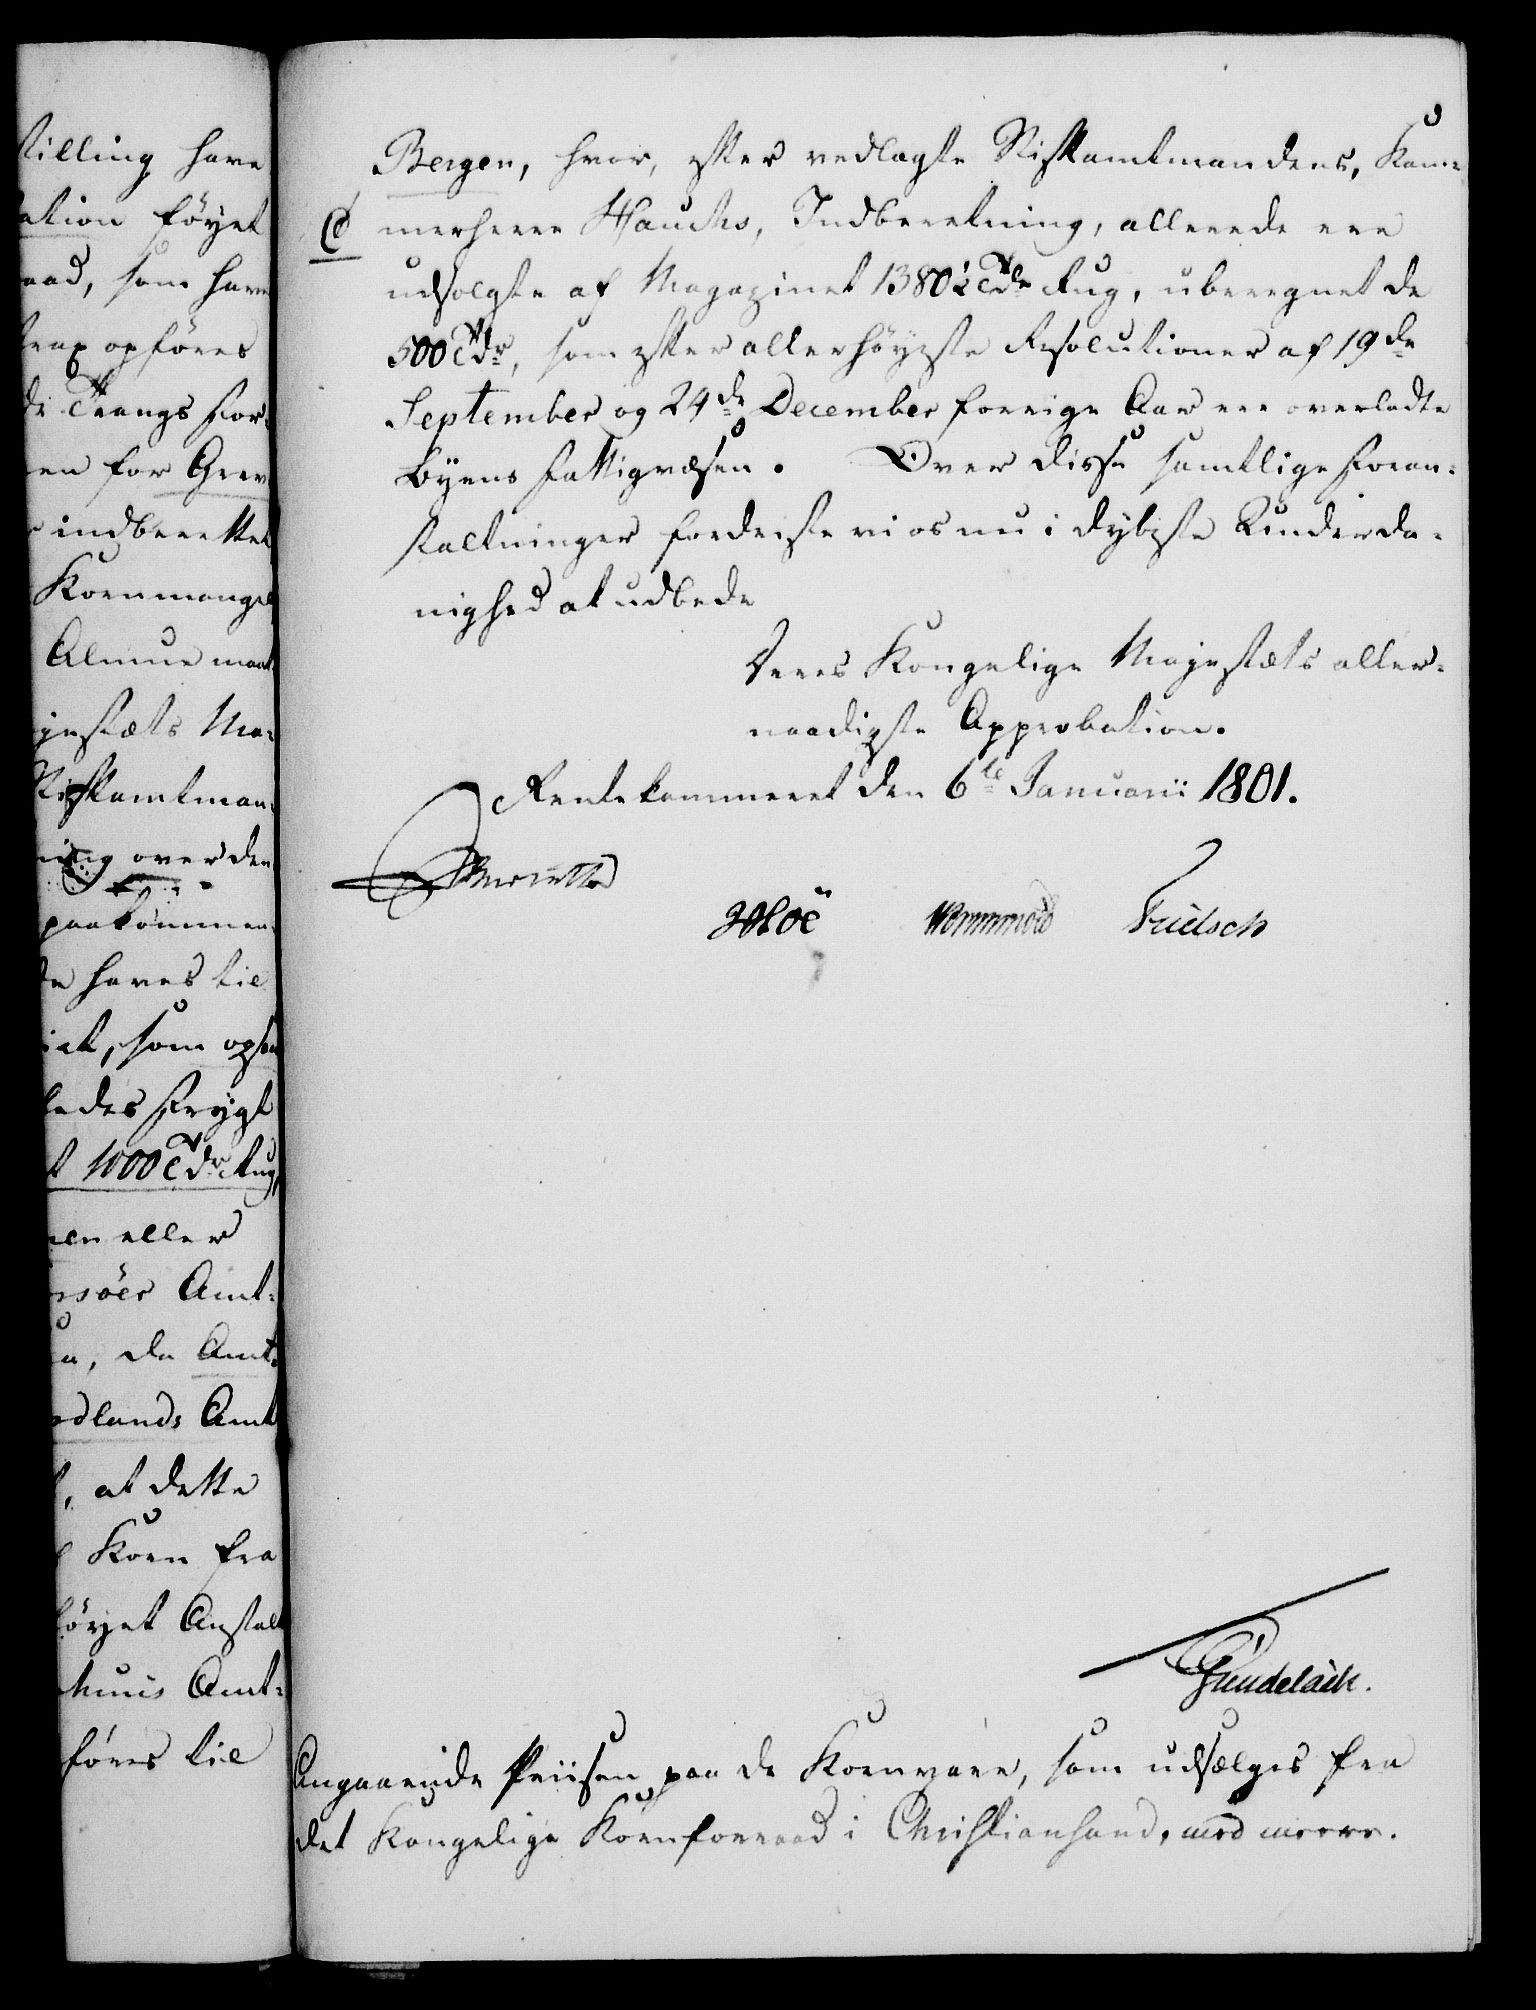 tilling have
ation föyet
aad, som have
trax opföres
de Trangs For-
en for Grev
indberettet
Kornmangel
Almue maat
jestæts Ma-
Stiftamtman-
ning over den
paakommen-
de haves til
iet, som opsen
ledes Frygt
t 1000 Tdr Rug,
len eller
nsöes Amt-
en, da Amt-
rdlands Amt
t, at dette
Korn fra
föyet Anstalt
huus Amt-
föres til
Bergen, hvor, efter vedlagte Stiftamtmandens, Kam-
merherre Hauchs, Indberetning, allerede ere
C
udsolgte af Magazinet 1380½ Tdr Rug, uberegnet de
500 Tdr, som efter allerhöyeste Resolutioner af 19de
September og 24de December forrige Aar ere overladte
Byens Fattigvæsen. Over disse samtlige Foran-
staltninger fordriste vi os nu i dybeste Underda-
nighed at udbede
Deres Kongelige Majestæts aller-
naadigste Approbation.
Rentekammeret den 6te Januarii 1801.
Hoë Wormskiold Fridsch
Gundelach.
Angaaende Priisen paa de Kornvare, som udsælges fra
det Kongelige Kornforraad i Christiansand, med meere.